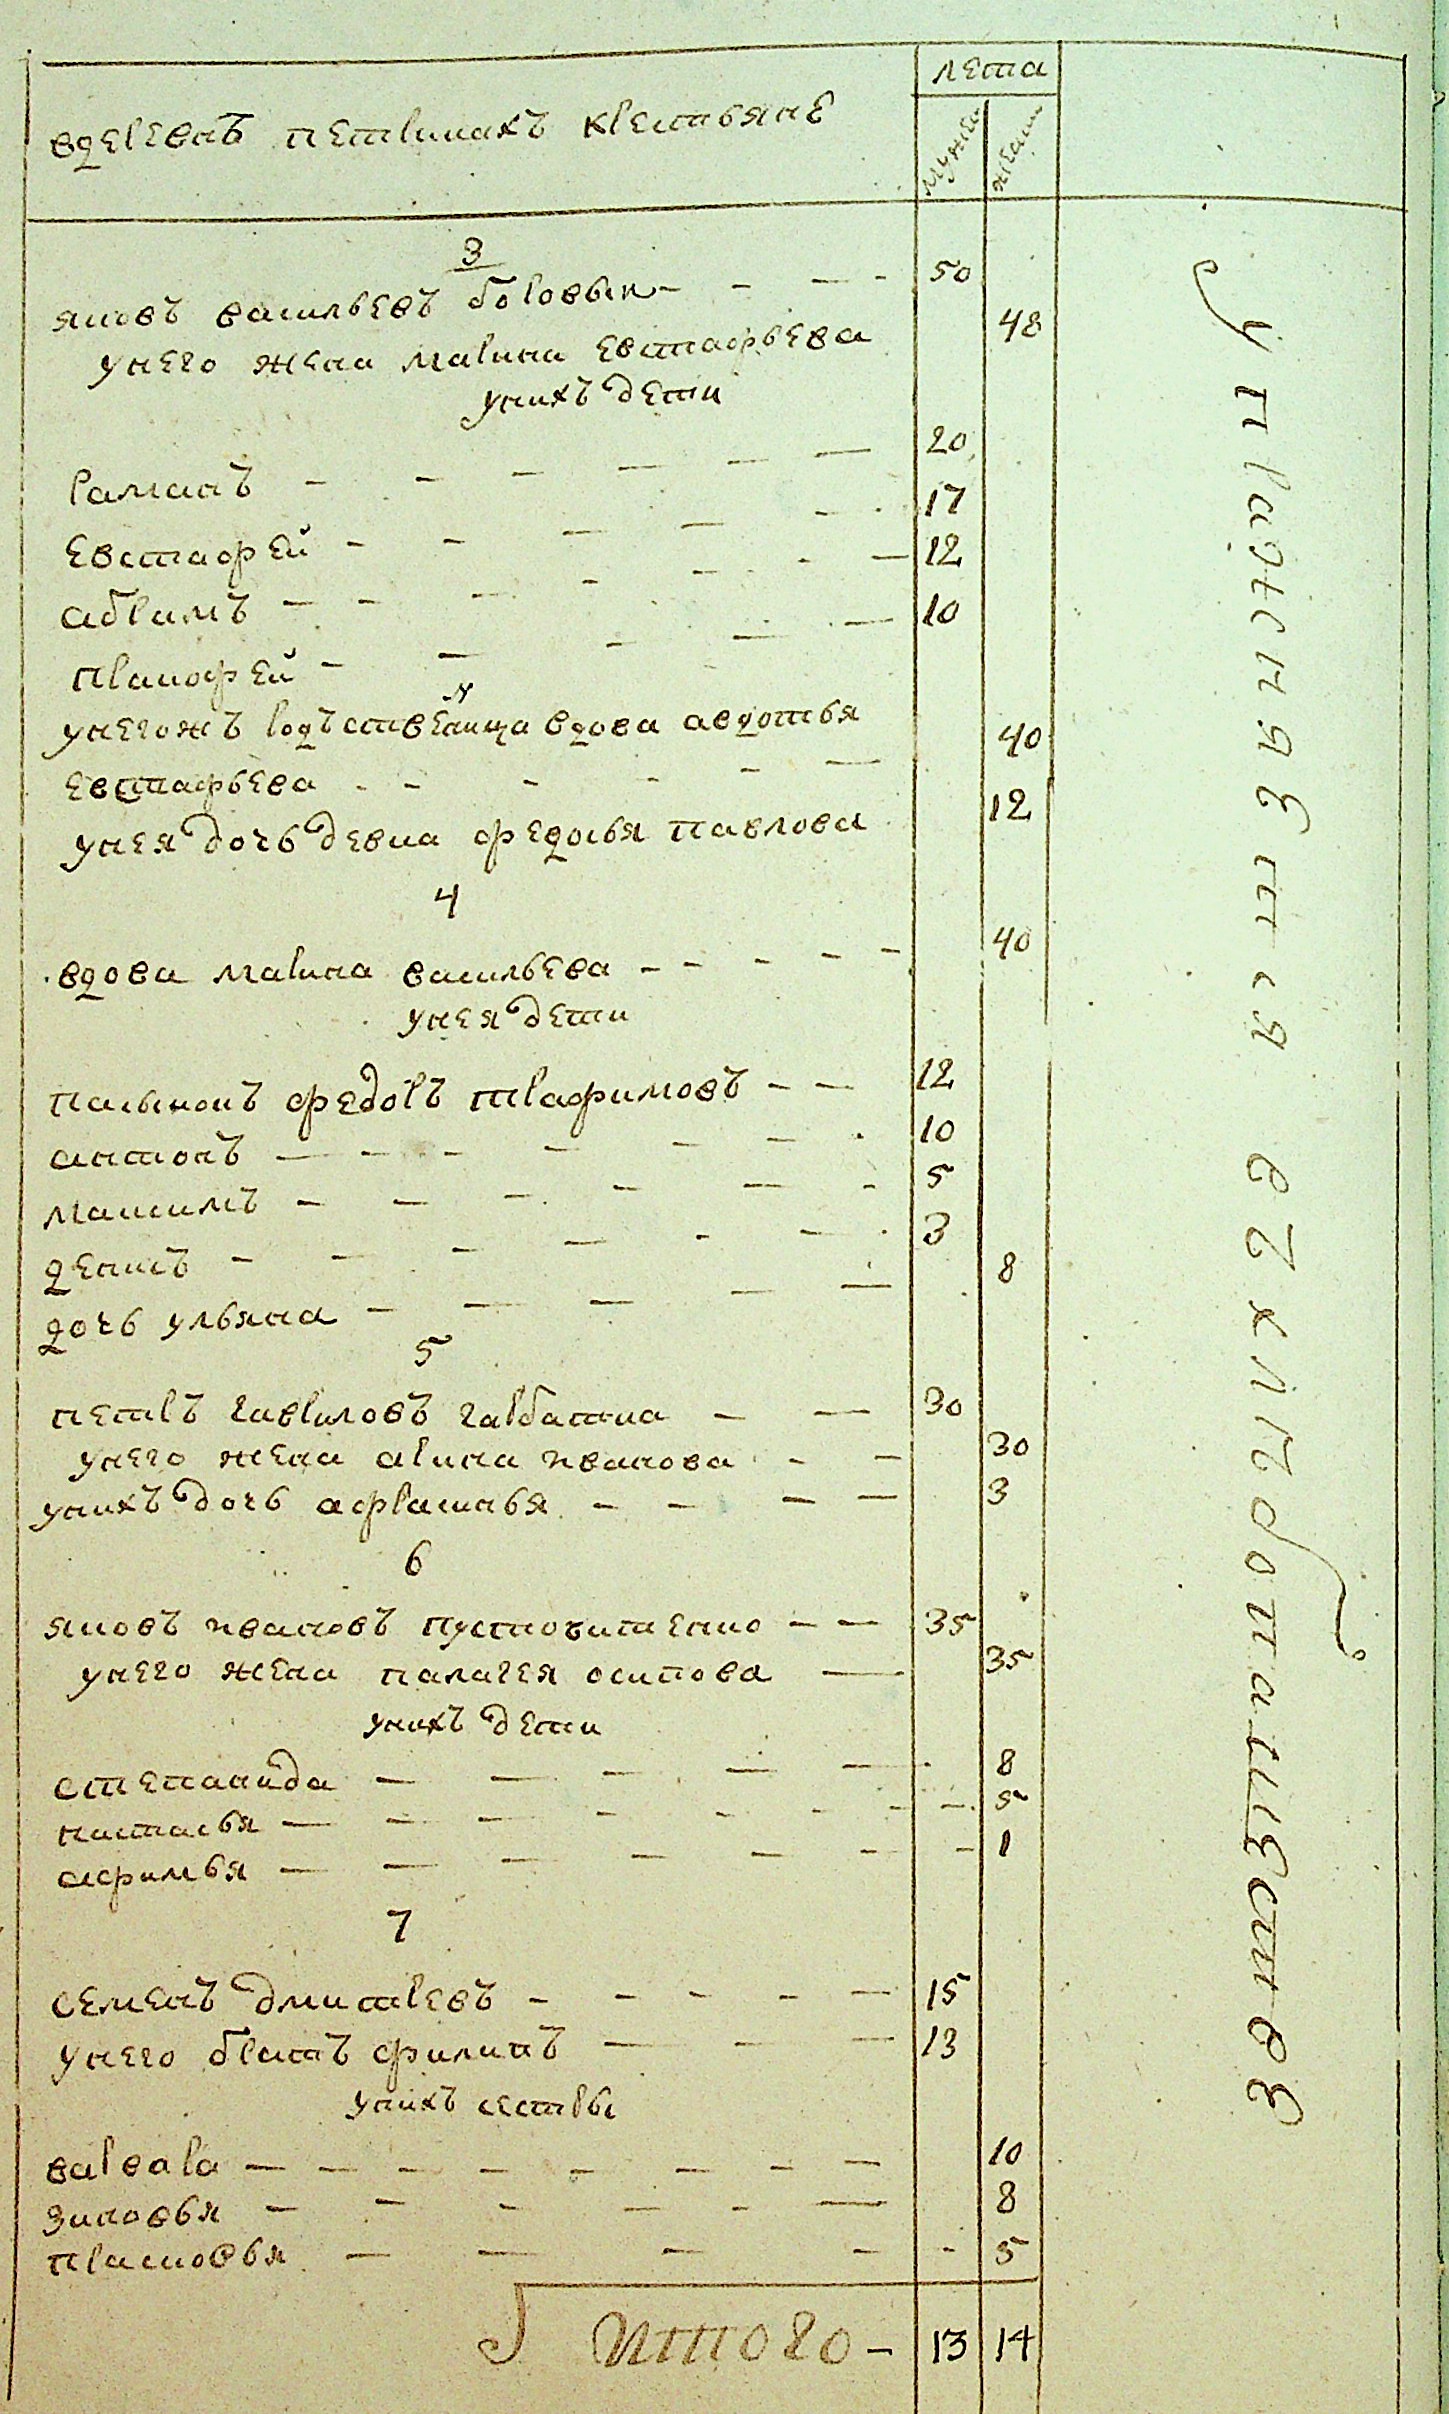 лета
вдеревнѣ петликахъ крестьяне
мужес
женс
3
яковъ васильевъ боровык — — — — 50
унего жена марина евстафьева 48
унихъ дети
раманъ — — — — — — 20
евстафей — — — — — 17
абрамъ — — — — — — 12
пракофей — — — — — 10
унегожъ родъственица вдова авдотья
евстафьева — — — — — 40
унея дочь девка федосья павлова 12
4
вдова марина васильева — — — — — 40
унея дети
пасынокъ федоръ трафимовъ — — 12
антонъ — — — — — — 10
максимъ — — — — — — 5
денисъ — — — — — — 3
дочь ульяна — — — — — 8
5
петръ гавриловъ гарбатка — — 30
унего жена арина иванова — — 30
унихъ дочь афрасинья — — — — 3
6
яковъ ивановъ пустовитенко — — 35
унего жена палагея осипова — 35
унихъ дети
степанида — — — — — 8
настасья — — — — — — — 5
афимья — — — — — — — 1
7
семенъ дмитревъ — — — — — 15
унего братъ филипъ — — — 13
унихъ сестры
варвара — — — — — — — — 10
зиновья — — — — — — 8
прасковья — — — — — 5
итого — 13 14